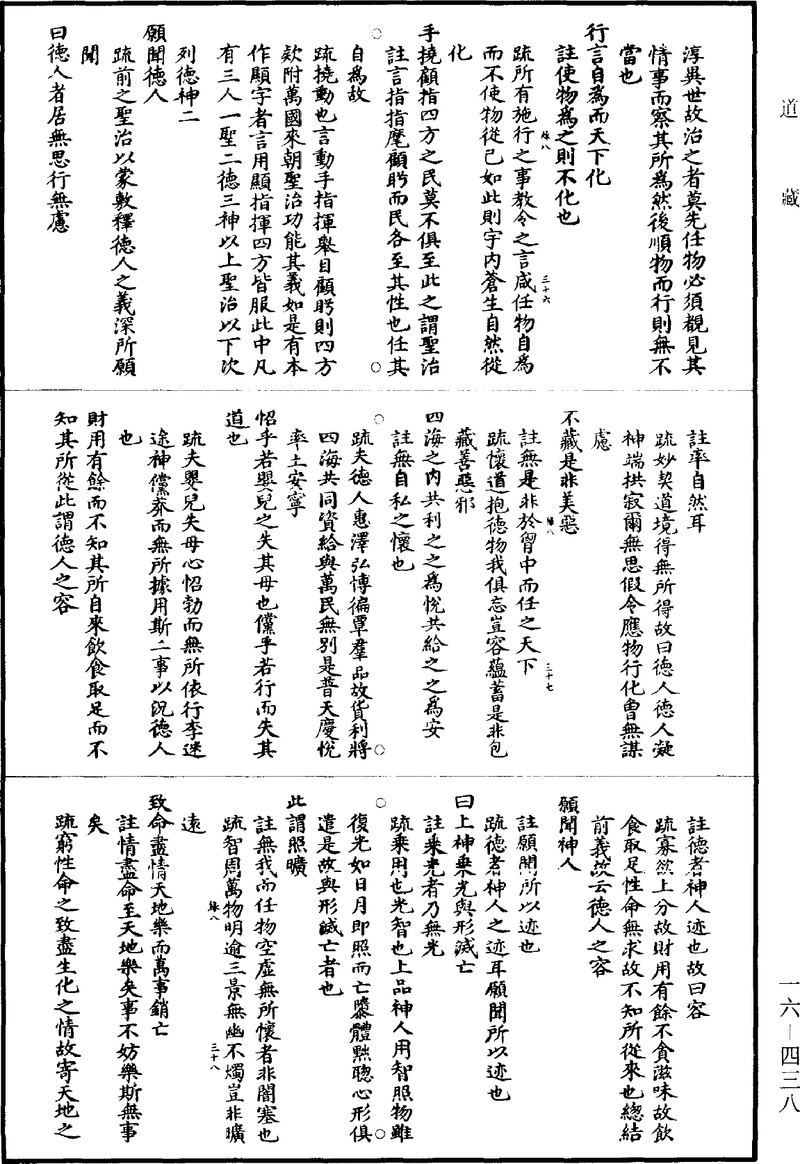 道藏
淳異世故治之者莫先任物必須覩見其
情事而察其所為然後順物而行則無不
當也
行言自為而天下化
註使物為之則不化也
疏所有施行之事教令之言咸任物自為
緣八
三十六
而不使物從己如此則宇內蒼生自然從
化
手撓顧指四方之民莫不俱至此之謂聖治
註言指指麾顧眄而民各至其性也任其
自為故
疏撓動也言動手指揮舉目顧眄則四方
欵附萬國來朝聖治功能其義如是有本
作顒字者言用顒指揮四方皆服此中凡
有三人一聖二德三神以上聖治以下次
列德神二
願聞德人
疏前之聖治以蒙敷釋德人之義深所願
聞
曰德人者居無思行無慮
註率自然耳
疏妙契道境得無所得故曰德人德人凝
神端拱寂爾無思假令應物行化曾無謀
慮
不藏是非美惡
緣八
註無是非於胷中而任之天下
三十七
疏懷道抱德物我俱忘豈容蘊蓄是非包
藏善惡邪
四海之內共利之之為悅共給之之為安
註無自私之懷也
疏夫德人惠澤弘博徧覃羣品故貨利將
四海共同資給與萬民無別是普天慶悅
率土安寧
怊乎若嬰兒之失其母也儻乎若行而失其
道也
疏夫嬰兒失母心怊勃而無所依行李迷
途神儻莽而無所據用斯二事以況德人
也
財用有餘而不知其所自來飲食取足而不
知其所從此謂德人之容
註德者神人迹也故曰容
疏寡欲上分故財用有餘不貪滋味故飲
食取足性命無求故不知所從來也總結
前義故云德人之容
願聞神人
註願聞所以迹也
疏德者神人之迹耳願聞所以迹也
曰上神乘光與形滅亡
註乘光者乃無光
疏乘用也光智也上品神人用智照物雖
復光如日月即照而亡隳體黜聰心形俱
遣是故與形滅亡者也
此謂照曠
註無我而任物空虛無所懷者非闇塞也
疏智周萬物明逾三景無幽不燭豈非曠
緣八
三十八
遠
致命盡情天地樂而萬事銷亡
註情盡命至天地樂矣事不妨樂斯無事
矣
疏窮性命之致盡生化之情故寄天地之
一六—四三八